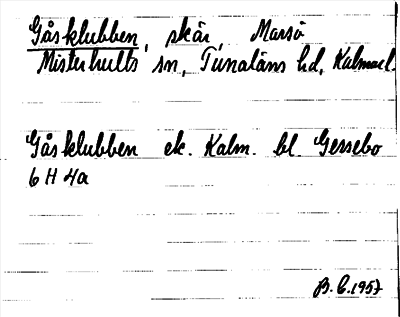 Gåsklubben, skär, Marsö
Misterhults sn, Tunaläns hd, Kalmar l.
Gåsklubben ek. Kalm. bl. Gessebo
6 H 4a
B.C. 1957